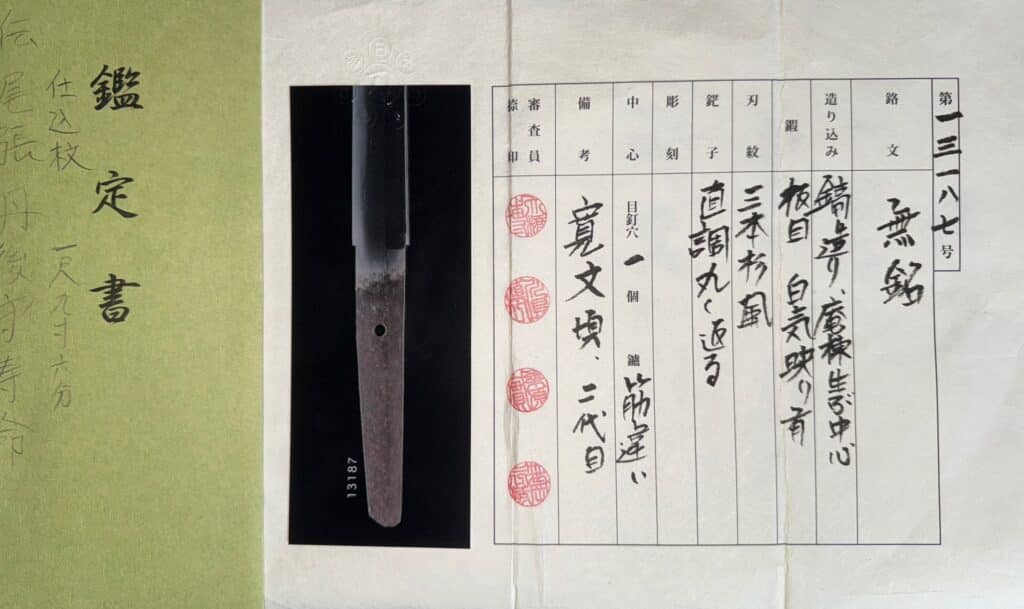 第一三一八七号
銘文
無銘
造り込み
鎬造り、庵棟生ぶ中心
鍜
板目 白気映り有
刃紋
三本杉風
鋩子
直調丸く返る
彫刻
中心
目釘穴 一 個 鑢 筋違い
備考
寛文頃、二代目
審査員
捺印
13187
鑑定書
仕込杖 一尺九寸六分
伝 尾張丹後守寿命